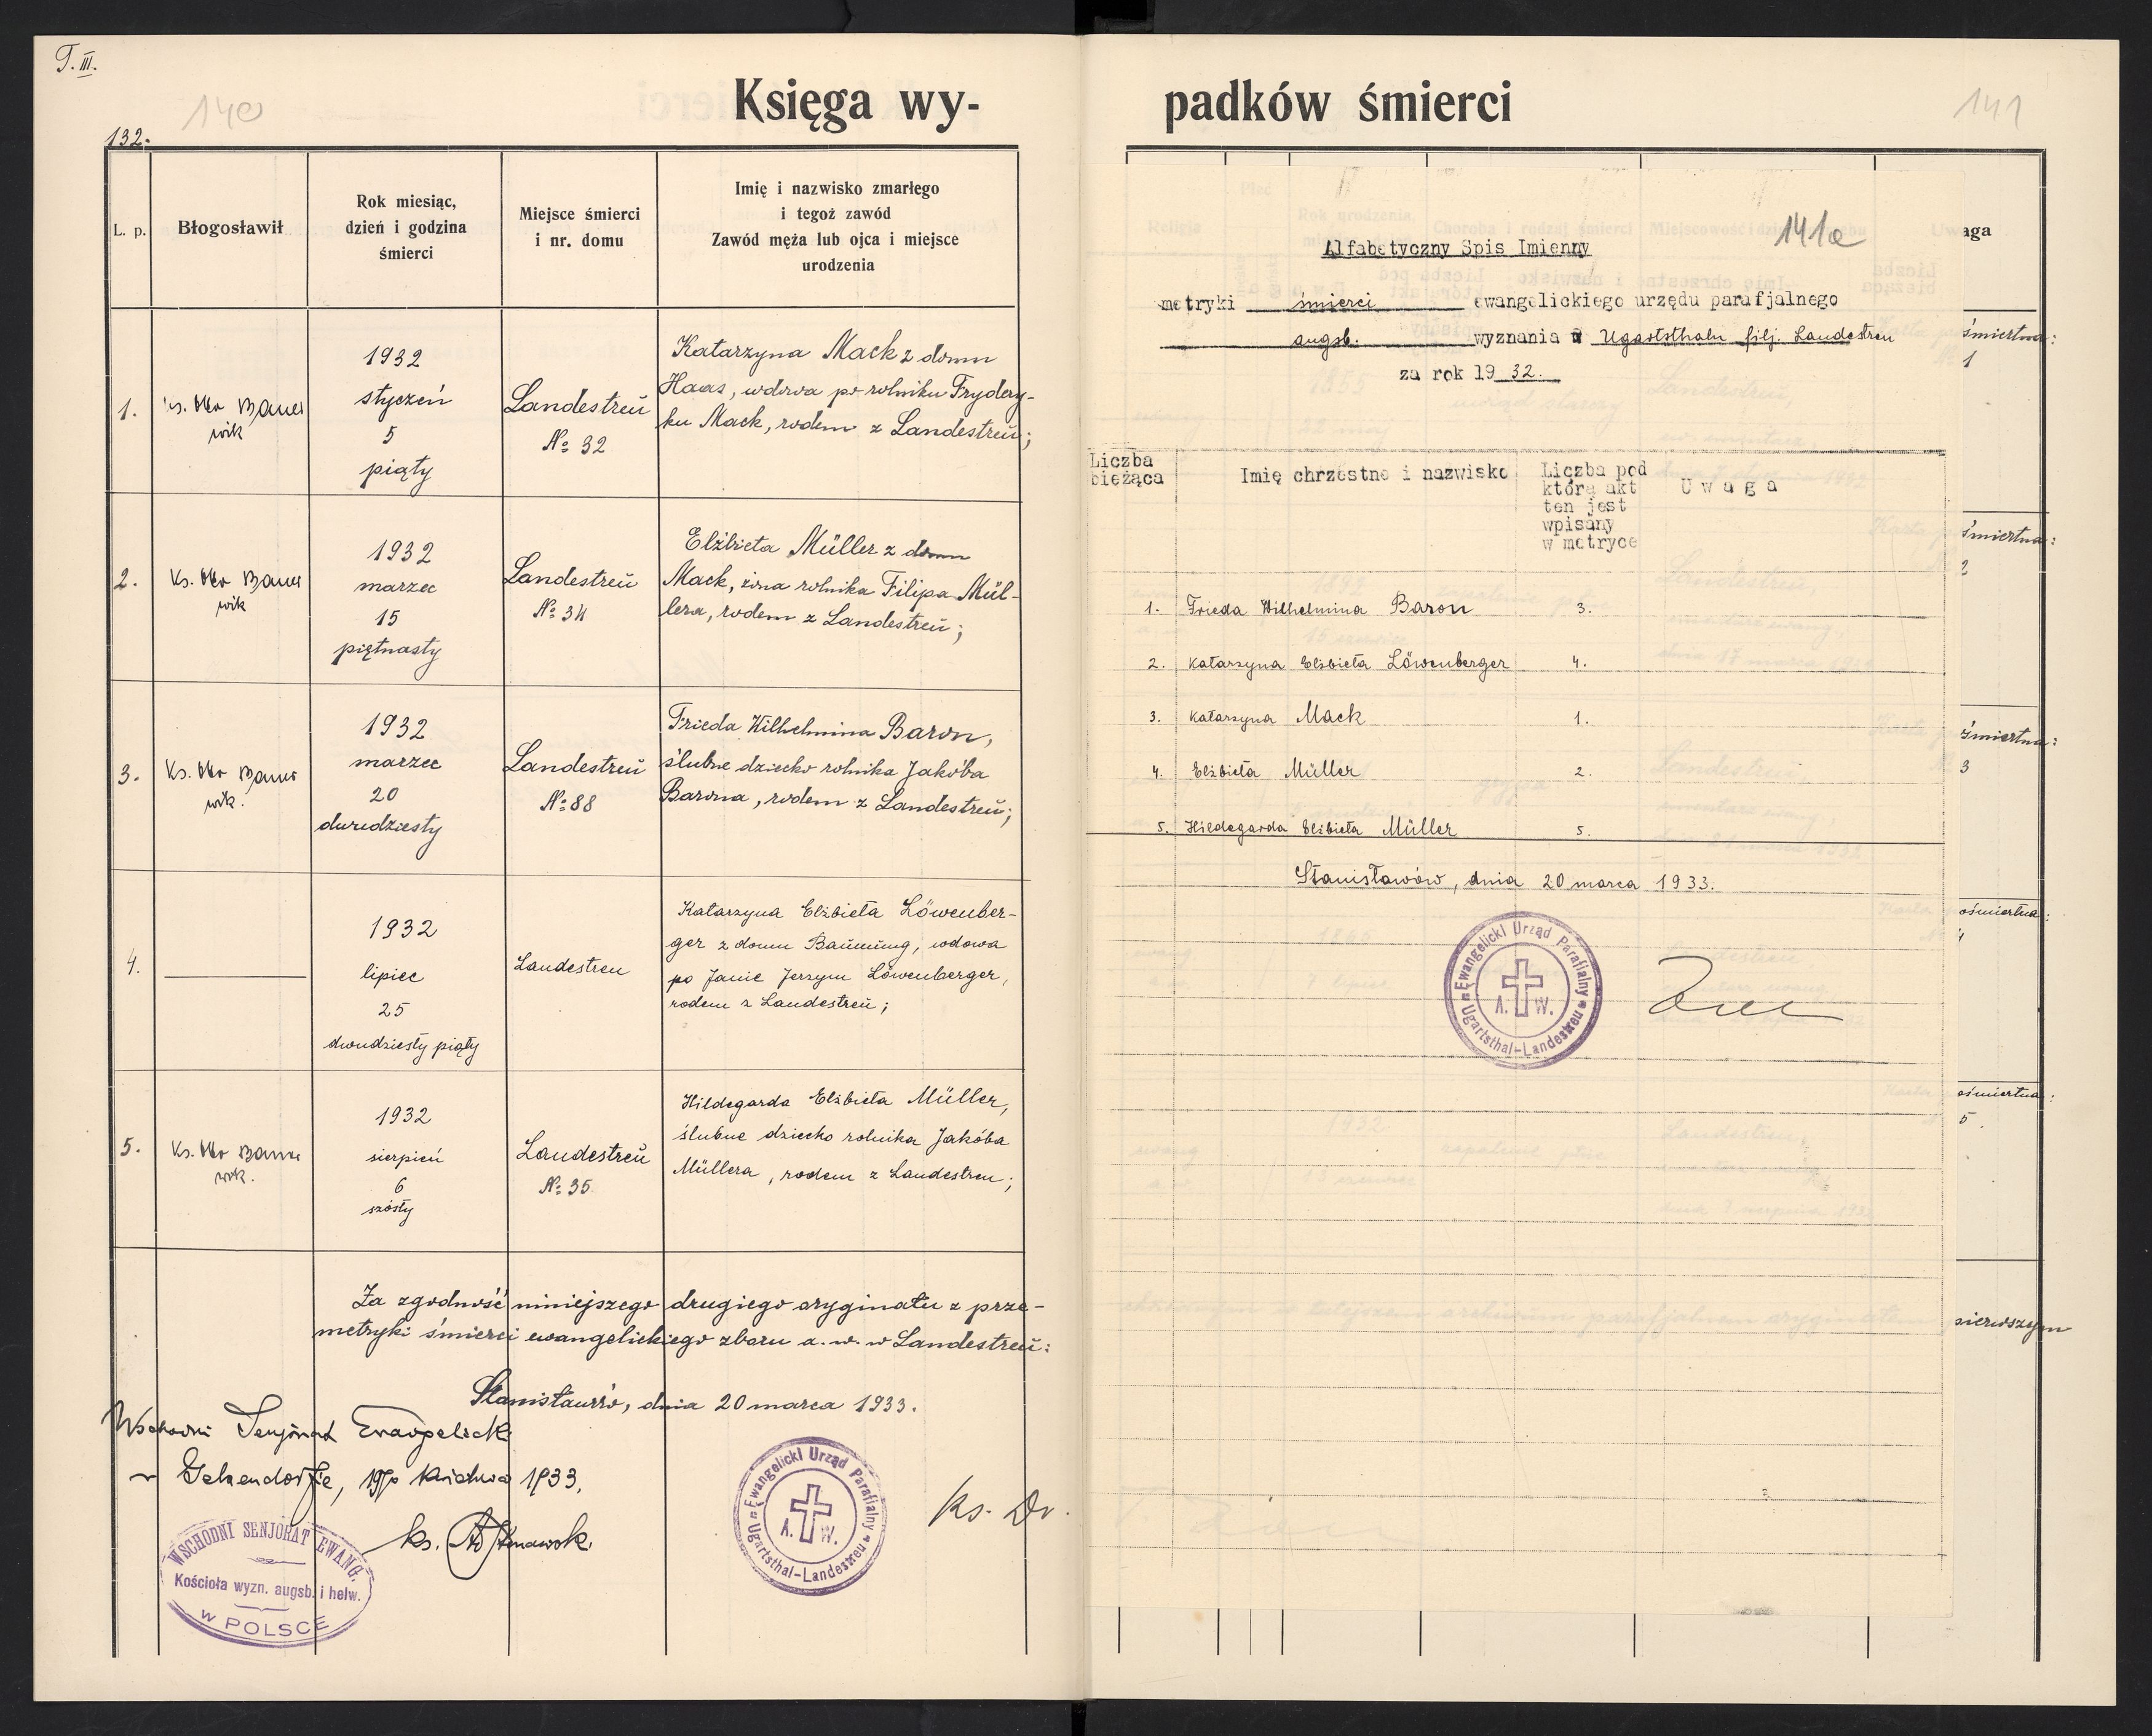 T. III.
140
132.
Księga wy-
L. p.
Błogosławił
Rok miesiąc,
dzień i godzina
śmierci
Miejsce śmierci
i nr. domu
Imię i nazwisko zmarłego
i tegoż zawód
Zawód męża lub ojca i miejsce
urodzenia
1.
ks. Bauer
wik
1932
styczeń
5
piąty
Landestreü
№ 32
Katarzyna Mack z domu
Haas, wdowa po rolniku Frydery-
ku Mack, rodem z Landestreü;
2.
Ks. Bauer
wik
1932
marzec
15
piętnasty
Landestreü
№ 34
Elżbieta Müller z domu
Mack, żona rolnika Filipa Mül-
lera, rodem z Landestreü;
3.
Ks. Bauer
wik.
1932
marzec
20
dwudziesty
Landestreü
№ 88
Frieda Wilhelmina Baron,
ślubne dziecko rolnika Jakóba
Barona, rodem z Landestreü;
4.
1932
lipiec
25
dwudziesty piąty
Landestreu
Katarzyna Elżbieta Löwenber-
ger z domu, wdowa
po Janie Jerzym Löwenberger,
rodem z Landestreü;
5.
Ks. Bauer
wik.
1932
sierpień
6
szósty
Landestreü
№ 35
Hildegarda Elżbieta Müller,
ślubne dziecko rolnika Jakóba
Müllera, rodem z Landestreu;
Za zgodność niniejszego drugiego oryginału z prze-
metryki śmierci ewangelickiego zboru a. w. w Landestreü:
Stanisławów, dnia 20 marca 1933.
Wschodni Senjorat Ewangelicki
w Gelsendorfie, 19go kwietnia 1933.
ks.
WSCHODNI SENJORAT EWANG.
Kościoła wyzn. augsb. i helw.
w POLSCE
Ewangelicki Urząd Parafialny
A. W.
Ugartsthal-Landestreu
Ks. Dr.
padków śmierci
141
141a
Uwaga
Alfabetyczny Spis Imienny
metryki śmierci ewangelickiego urzędu parafjalnego
augsb. wyznania w Ugartsthalu filj. Landestreu
za rok 19 32.
Liczba
bieżąca
Imię chrzestne i nazwisko
Liczba pod
którą akt
ten jest
wpisany
w metryce
Uwaga
1. Frieda Wilhelmina Baron 3.
2. Katarzyna Elżbieta Löwenberger 4.
3. Katarzyna Mack 1.
4. Elżbieta Müller 2.
5. Hildegarda Elżbieta Müller 5.
Stanisławów, dnia 20 marca 1933.
Ewangelicki Urząd Parafialny
A. W.
Ugartsthal-Landestreu
śmiertna:
1
śmiertna:
2
śmiertna:
3
ośmiertna:
4
ośmiertna:
5.
pierwszym